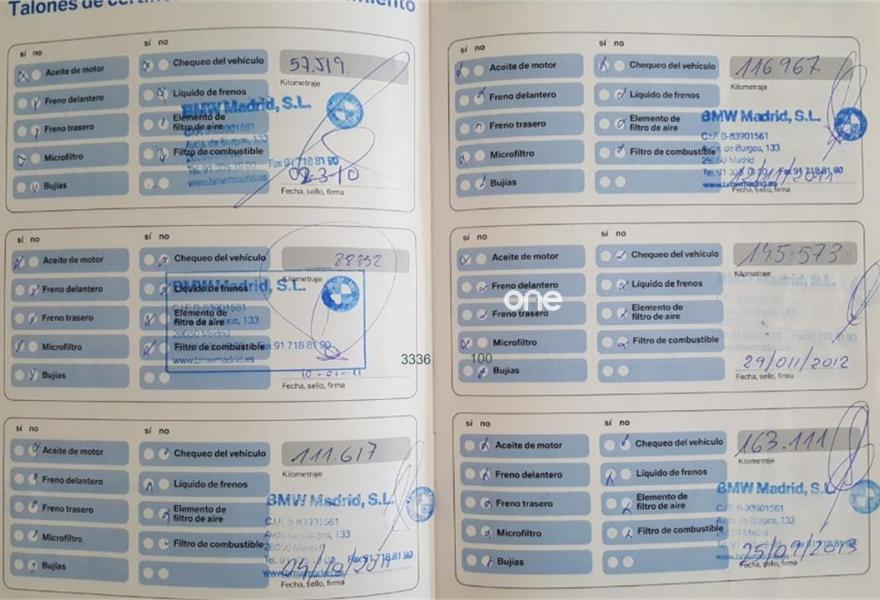 Talones de
sí no sí no
Aceite de motor Chequeo del vehículo 57519
Kilometraje
Freno delantero Líquido de frenos
BMW Madrid, S.L.
Freno trasero Elemento de
filtro de aire
Microfiltro Filtro de combustible Fax 91 718 81 90
www.bmwmadrid.es
Bujías
Fecha, sello, firma
sí no sí no
Aceite de motor Chequeo del vehículo 88352
Kilometraje
Freno delantero Líquido de frenos
BMW Madrid, S.L.
Freno trasero Elemento de
filtro de aire
Microfiltro Filtro de combustible Fax 91 718 81 90
www.bmwmadrid.es
Bujías 10-01-11
Fecha, sello, firma
sí no sí no
Aceite de motor Chequeo del vehículo 111.617
Kilometraje
Freno delantero Líquido de frenos
BMW Madrid, S.L.
Freno trasero Elemento de
filtro de aire
C.I.F. B-83901561
Microfiltro Filtro de combustible
28050 Madrid
Fax 91 718 81 90
Bujías
Fecha, sello, firma
sí no sí no
Aceite de motor Chequeo del vehículo 116967
Kilometraje
Freno delantero Líquido de frenos
BMW Madrid, S.L.
Freno trasero Elemento de
filtro de aire
C.I.F. B-83901561
Microfiltro Filtro de combustible de Burgos, 133
28050 Madrid
Fax 91 718 81 90
www.bmwmadrid.es
Bujías
Fecha, sello, firma
sí no sí no
Aceite de motor Chequeo del vehículo 145.573
Kilometraje
Freno delantero Líquido de frenos
one
Freno trasero Elemento de
filtro de aire
Microfiltro Filtro de combustible
Bujías 29/011/2012
Fecha, sello, firma
3336 100
sí no sí no
Aceite de motor Chequeo del vehículo 163.111
Kilometraje
Freno delantero Líquido de frenos
BMW Madrid, S.L.
Freno trasero Elemento de
filtro de aire
C.I.F. B-83901561
Microfiltro Filtro de combustible
Bujías 25/09/2013
Fecha, sello, firma